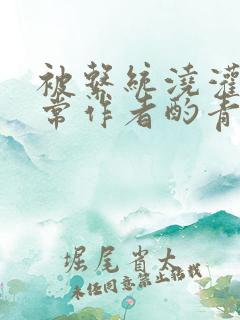 被系统浇灌
常作者酌青
堀尾省太
未经同意禁止转载